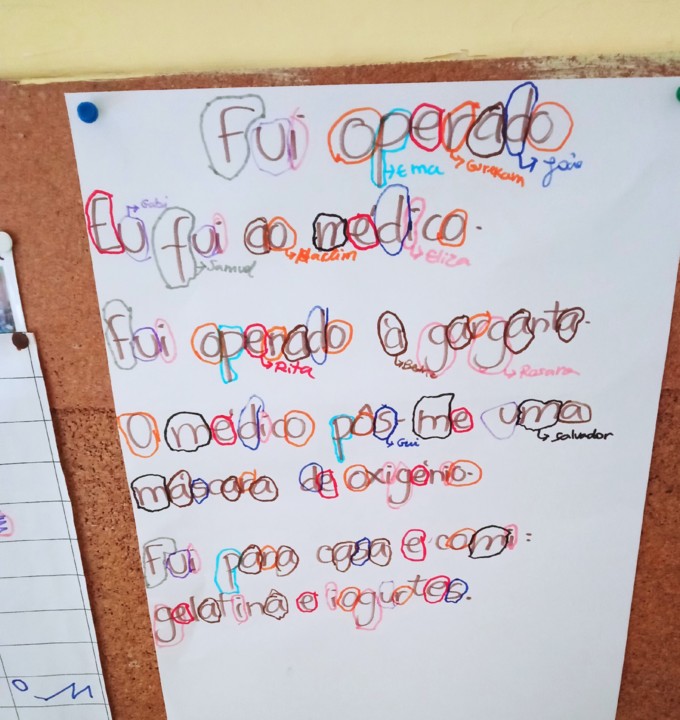 Fui operado
Ema Gurekam João
Gabi
Eu fui ao médico.
Samuel Martim Eliza
fui operado à garganta.
Rita Rosana
O médico pôs-me uma
Gui Salvador
máscara de oxigénio.
Fui para casa e comi:
gelatina e iogurtes.